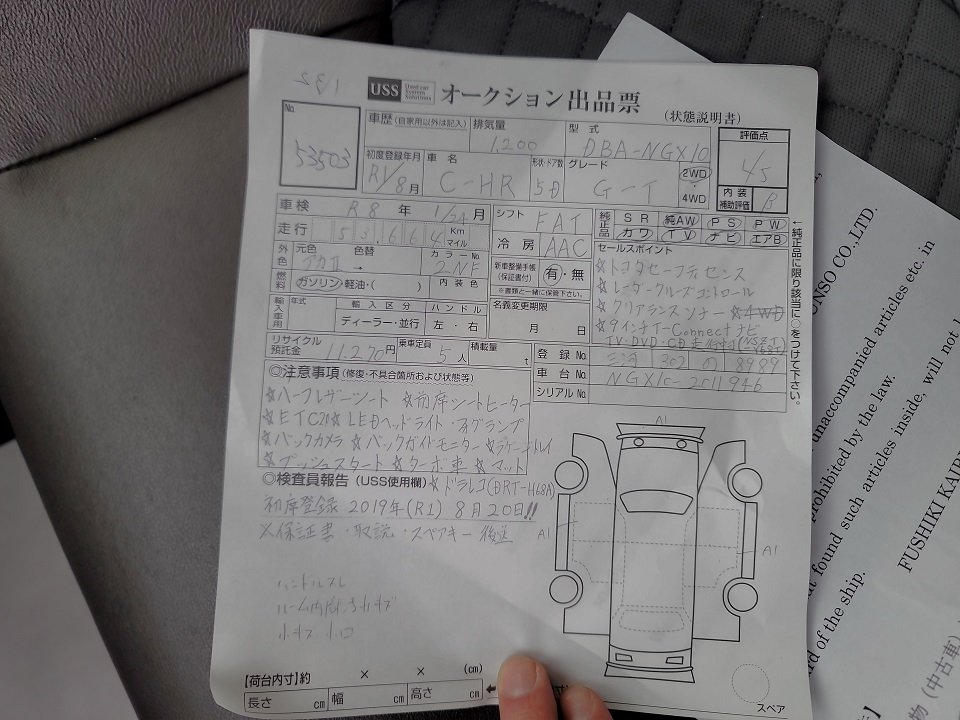 USS Used car System Solutions オークション出品票 (状態説明書)
No. 53503
車歴 (自家用以外は記入)
排気量 1,200
型式 DBA-NGX10
評価点 4/5
初度登録年月 R1/8月
車名 C-HR
形状・ドア数 5D
グレード G-T
2WD・4WD
内装補助評価 B
車検 R8年 1/24月
シフト FAT
純正品 SR 純AW PS PW
カワ TV ナビ エアB
走行 53,664 Km マイル
冷房 AAC
外色 元色 アカII 色替 → カラーNo. 2NF
燃料 ガソリン・軽油・( ) 内装色
新車整備手帳 (保証書付) 有・無
※書類と一緒に保管下さい。
セールスポイント
☆トヨタセーフティセンス
☆レーダークルーズコントロール
☆クリアランスソナー ☆4WD
☆9インチT-Connectナビ
TV・DVD・CD
輸入車用 年式 輸入区分 ディーラー・並行 ハンドル 左・右
名義変更期限 月 日
リサイクル預託金 11,270円
乗車定員 5人
積載量 t
登録No. 三河 302 の 8989
車台No. NGX10-2011946
シリアルNo.
←純正品に限り該当に○をつけて下さい。
◎注意事項 (修復・不具合箇所および状態等)
☆ハーフレザーシート ☆前席シートヒーター
☆ETC2.0 ☆LEDヘッドライト・フォグランプ
☆バックカメラ ☆バックガイドモニター
☆プッシュスタート ☆ターボ車 ☆マット
◎検査員報告 (USS使用欄) ☆ドラレコ(DRT-H68A)
初度登録 2019年(R1) 8月20日!!
※保証書・取説・スペアキー後送
ハンドルスレ
小キズ 小凹
A1
A1
A1
【荷台内寸】約 × × (cm)
長さ cm 幅 cm 高さ cm ←
スペア
ONSO CO.,LTD.
unaccompanied articles etc. in
prohibited by the law.
found such articles inside, will not
rd of the ship.
FUSHIKI KAI
(中古車)